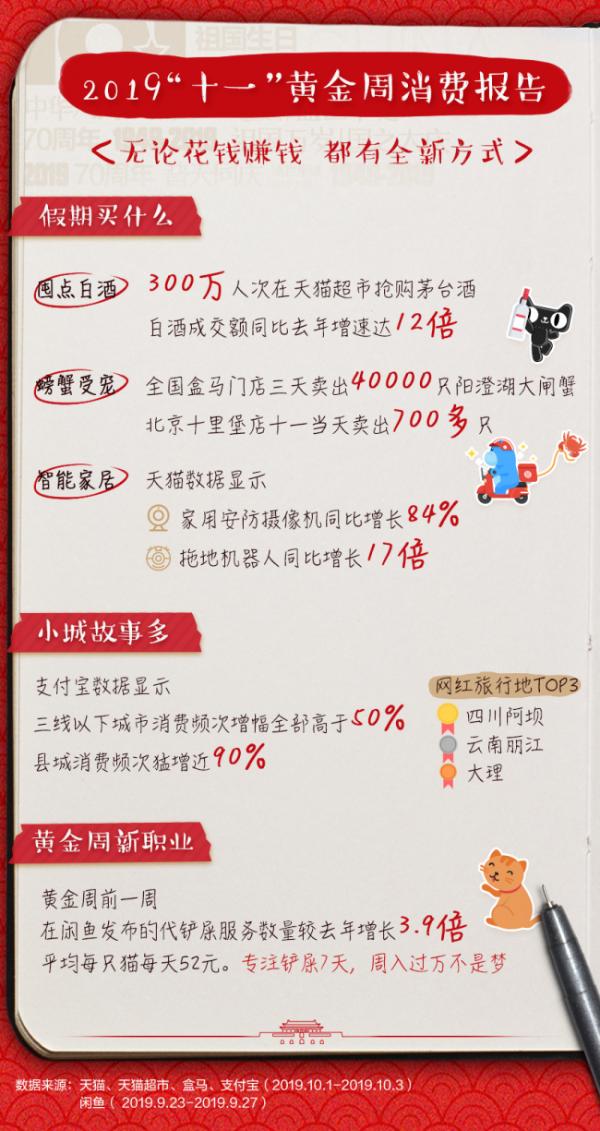 祖国生日
2019“十一”黄金周消费报告
70周年 1949-2019
2019 70周年
<无论花钱赚钱 都有全新方式>
假期买什么
囤点白酒 300万人次在天猫超市抢购茅台酒
白酒成交额同比去年增速达12倍
螃蟹受宠 全国盒马门店三天卖出40000只阳澄湖大闸蟹
北京十里堡店十一当天卖出700多只
智能家居 天猫数据显示
家用安防摄像机同比增长84%
拖地机器人同比增长17倍
小城故事多
支付宝数据显示
三线以下城市消费频次增幅全部高于50%
县城消费频次猛增近90%
网红旅行地TOP3
四川阿坝
云南丽江
大理
黄金周新职业
黄金周前一周
在闲鱼发布的代铲屎服务数量较去年增长3.9倍
平均每只猫每天52元。专注铲屎7天，周入过万不是梦
数据来源：天猫、天猫超市、盒马、支付宝（2019.10.1-2019.10.3）
闲鱼（2019.9.23-2019.9.27）